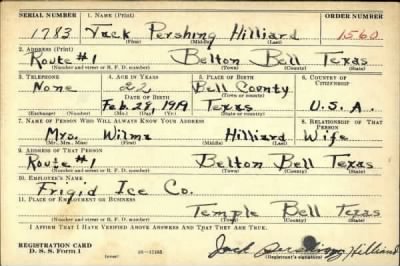 SERIAL NUMBER 1. NAME (Print) ORDER NUMBER
1783 Jack Pershing Hilliard 1560
(First) (Middle) (Last)
2. ADDRESS (Print)
Route #1 Belton Bell Texas
(Number and street or R. F. D. number) (Town) (County) (State)
3. TELEPHONE 4. AGE IN YEARS 5. PLACE OF BIRTH 6. COUNTRY OF CITIZENSHIP
None 22 Bell County
DATE OF BIRTH (Town or county)
Feb. 28, 1919 Texas U.S.A.
(Exchange) (Number) (Mo.) (Day) (Yr.) (State or country)
7. NAME OF PERSON WHO WILL ALWAYS KNOW YOUR ADDRESS 8. RELATIONSHIP OF THAT PERSON
Mrs. Wilma Hilliard Wife
(Mr., Mrs., Miss) (First) (Middle) (Last)
9. ADDRESS OF THAT PERSON
Route #1 Belton Bell Texas
(Number and street or R. F. D. number) (Town) (County) (State)
10. EMPLOYER'S NAME
Frigid Ice Co.
11. PLACE OF EMPLOYMENT OR BUSINESS
Temple Bell Texas
(Number and street or R. F. D. number) (Town) (County) (State)
I AFFIRM THAT I HAVE VERIFIED ABOVE ANSWERS AND THAT THEY ARE TRUE.
REGISTRATION CARD
D. S. S. Form 1 Jack Pershing Hilliard
(Registrant's signature)